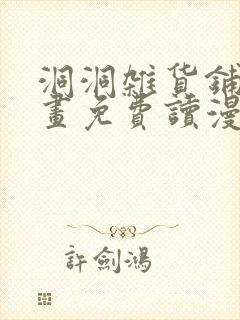 洞洞雜貨鋪
畫免費讀漫
許劍鴻